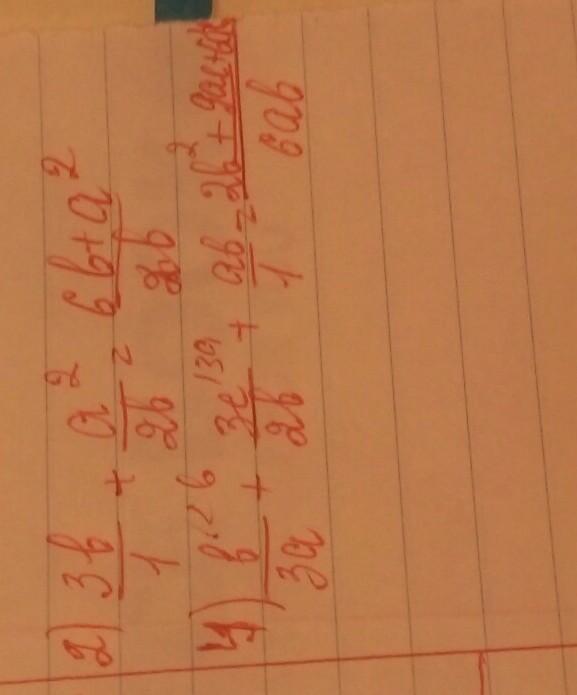 2) 3b/1 + a²/2b = 6b+a²/2b
4) b^{·2b}/3a + 3c^{13a}/2b + ab/1 = 2b² + 9ac+/6ab